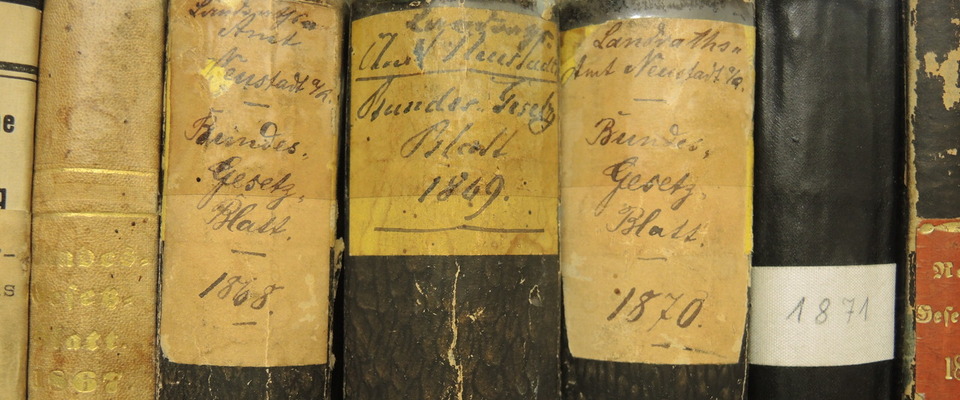 he
g
s
ndes-
eset-
latt.
1867
Landraths-
Amt
Neustadt a/A.
Bundes-
Gesetz-
Blatt.
1868.
Amt Neustadt
Bundes-Gesetz
Blatt
1869.
Landraths-
Amt Neustadt a/A.
Bundes-
Gesetz-
Blatt.
1870.
1871
Gese
18